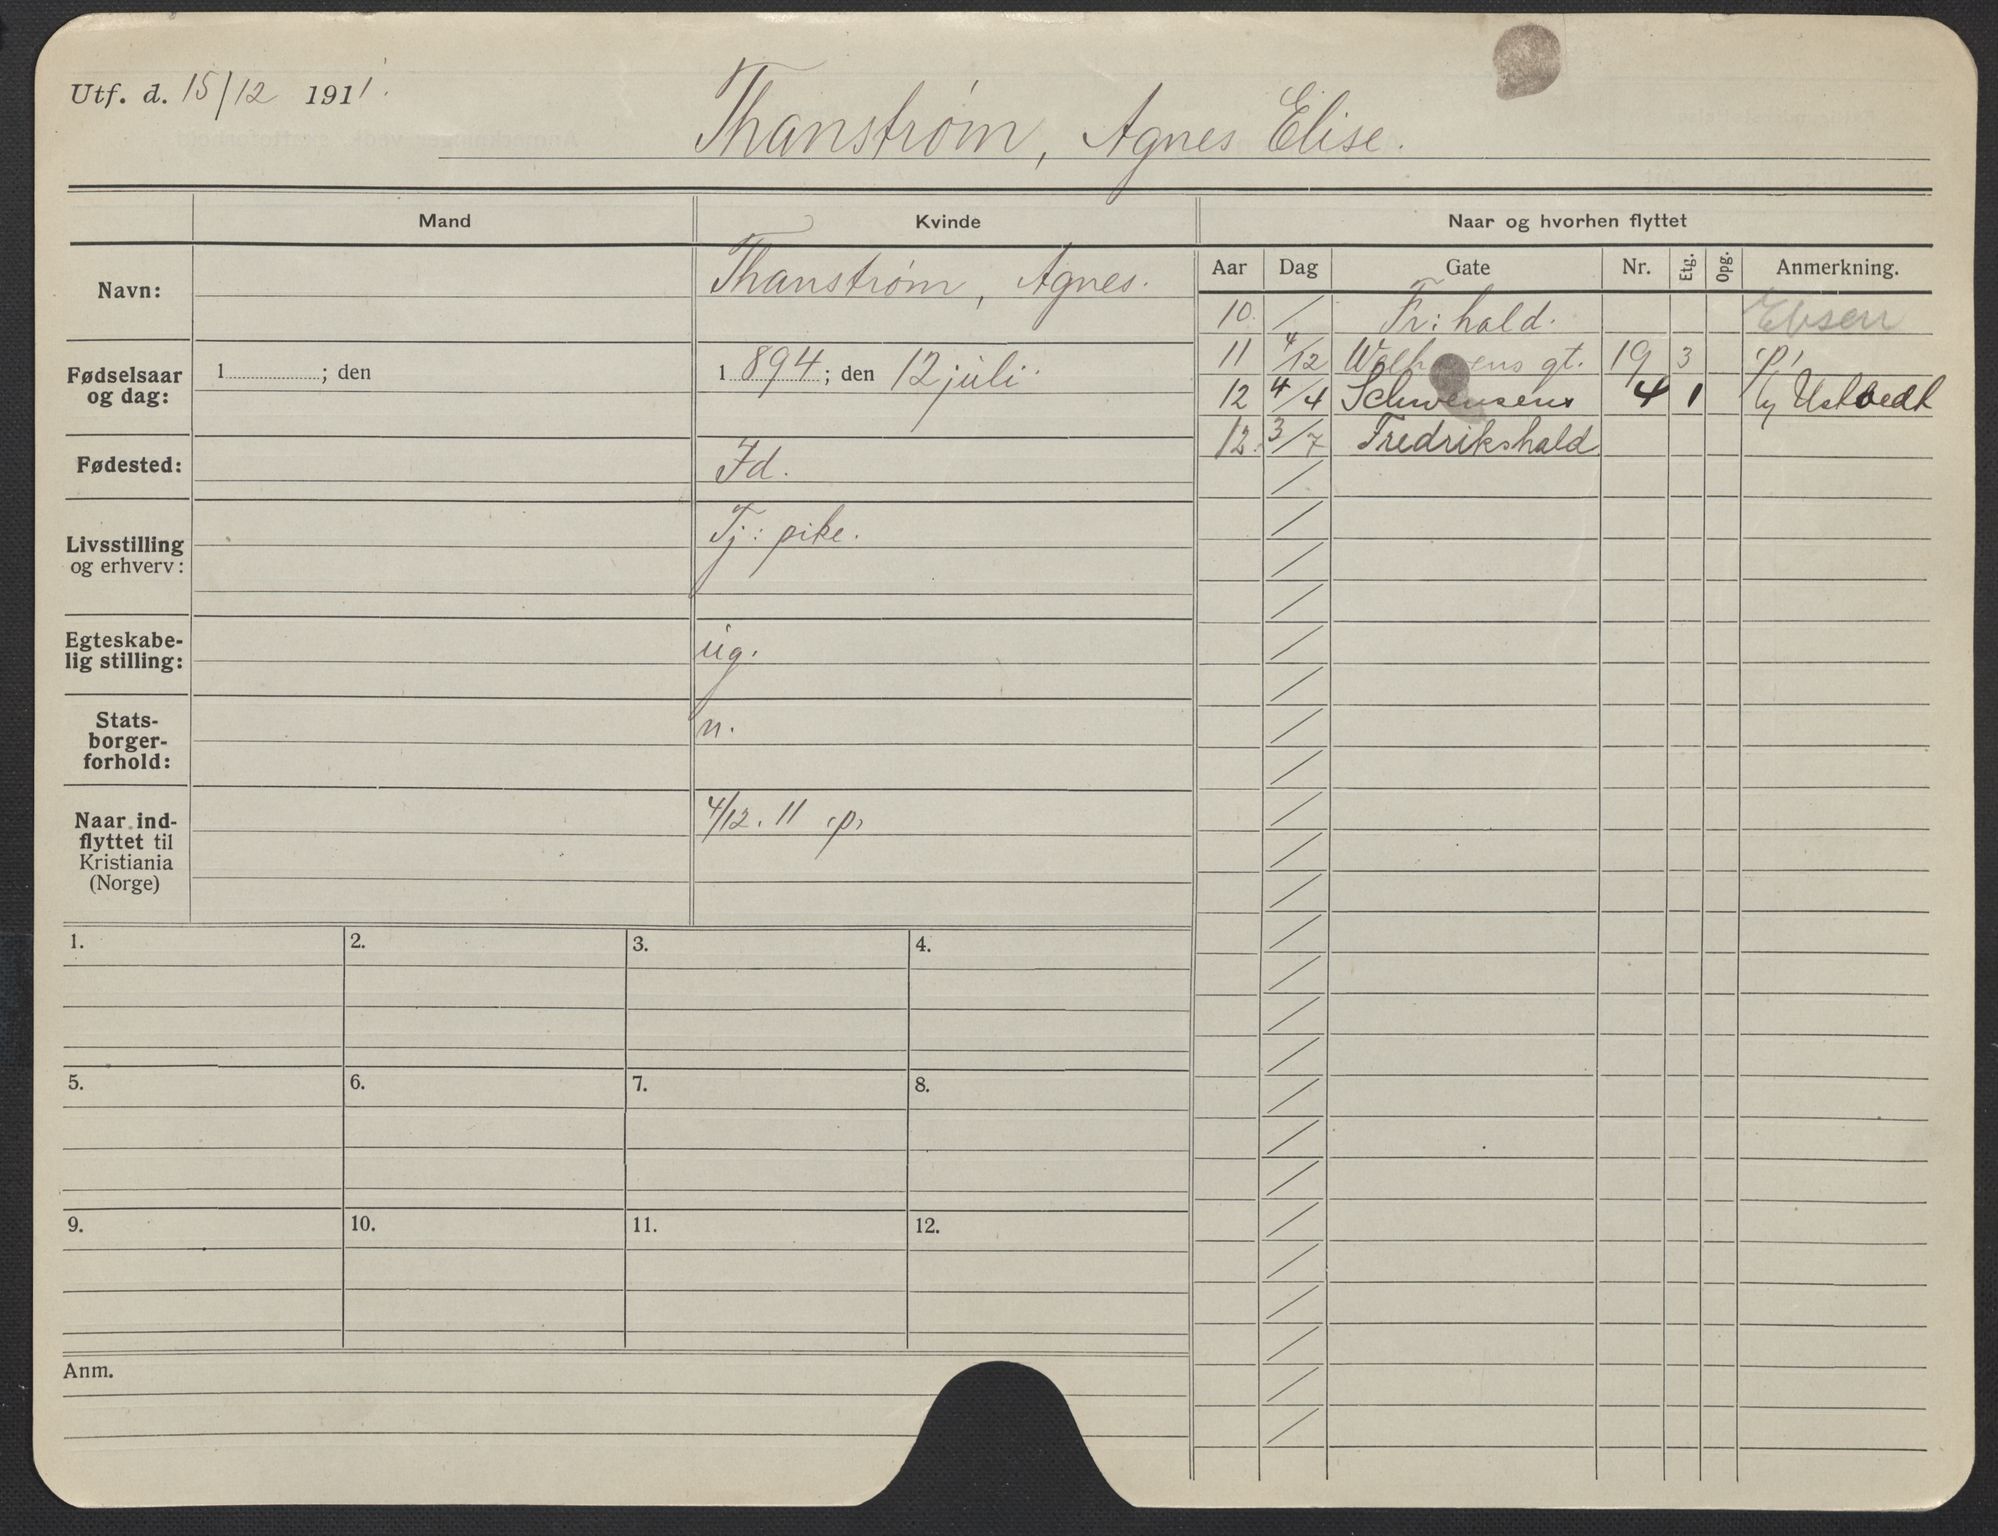 Utf. d. 15/12 1911.
Thanstrøm, Agnes Elise.
Mand
Kvinde
Naar og hvorhen flyttet
Navn:
Thanstrøm, Agnes.
Fødselsaar og dag:
1 ; den
1 894 ; den 12 juli
Fødested:
Id.
Livsstilling og erhverv:
Tj: pike.
Egteskabe-
lig stilling:
ug.
Stats-
borger-
forhold:
n.
Naar ind-
flyttet til
Kristiania
(Norge)
4/12. 11 p,
Aar Dag Gate Nr. Etg. Opg. Anmerkning.
10. / Fr: hald.
11 4/12 gt. 19 3 p,
12 4/4 Schwensens 4 1
12. 3/7 Fredrikshald
1. 2. 3. 4.
5. 6. 7. 8.
9. 10. 11. 12.
Anm.